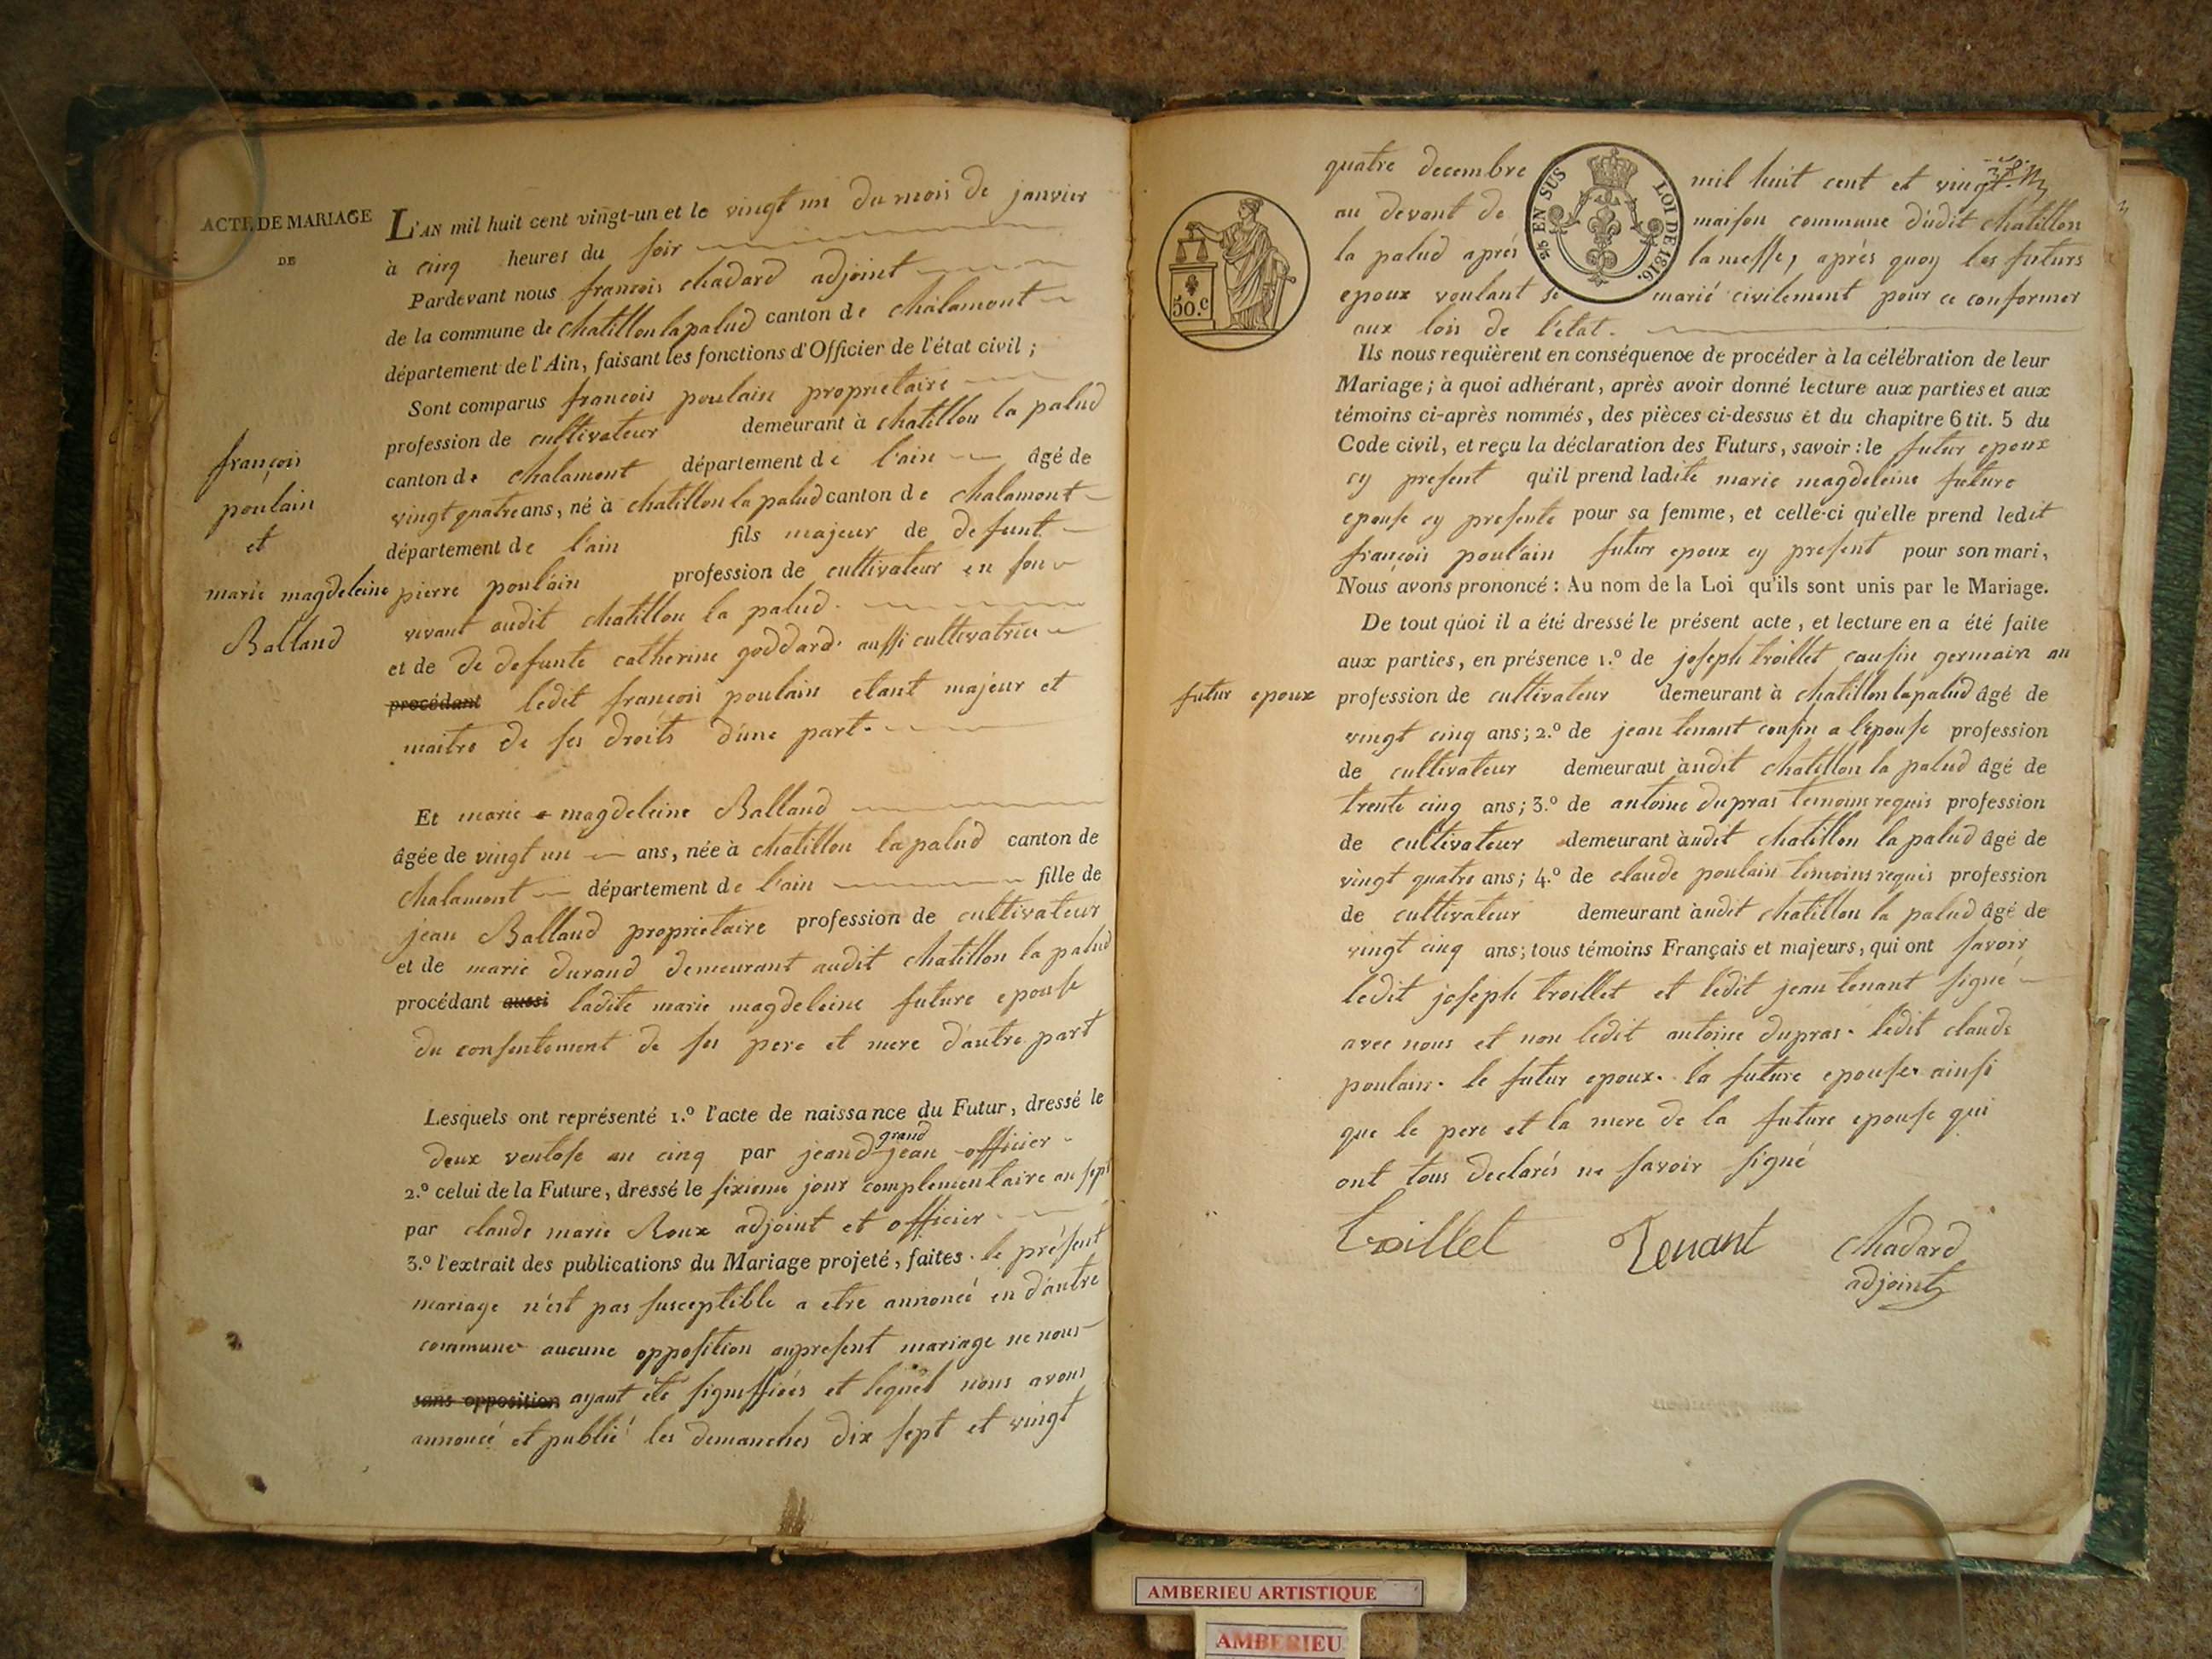 ACTE DE MARIAGE
DE
françois
poulain
et
marie magdeleine
Balland
L'AN mil huit cent vingt-un et le vingt un du mois de janvier
à cinq heures du soir
Pardevant nous françois chadard adjoint
de la commune de chatillon la palud canton de chalamont
département de l'Ain, faisant les fonctions d'Officier de l'état civil ;
Sont comparus françois poulain proprietaire
profession de cultivateur demeurant à chatillon la palud
canton de chalamont département de l'ain âgé de
vingt quatre ans, né à chatillon la palud canton de chalamont
département de l'ain fils majeur de defunt
pierre poulain profession de cultivateur en son
vivant audit chatillon la palud.
et de de defunte catherine goddard aussi cultivatrice
procédant ledit françois poulain etant majeur et
maitre de ses droits d'une part.
Et marie magdeleine Balland
âgée de vingt un ans, née à chatillon la palud canton de
chalamont département de l'ain fille de
jean Balland proprietaire profession de cultivateur
et de marie durand demeurant audit chatillon la palud
procédant aussi ladite marie magdeleine future epouse
du consentement de ses pere et mere d'autre part
Lesquels ont représenté 1.º l'acte de naissance du Futur, dressé le
grand
deux ventose an cinq par jean officier
2.º celui de la Future, dressé le sixieme jour complementaire an sept
par claude marie Roux adjoint et officier
3.º l'extrait des publications du Mariage projeté, faites. le présent
mariage n'est pas susceptible a etre annoncé en d'autre
commune aucune opposition au present mariage ne nous
sans opposition ayant été signiffiées et lequel nous avons
annoncé et publié les demanches dix sept et vingt
quatre decembre mil huit cent et vingt
au devant de maison commune dudit chatillon
la palud après la messe, après quoy les futurs
epoux voulant se marié civilement pour ce conformer
aux lois de l'état.
50.c
2/5 EN SUS
LOI DE 1816.
Ils nous requièrent en conséquence de procéder à la célébration de leur
Mariage ; à quoi adhérant, après avoir donné lecture aux parties et aux
témoins ci-après nommés, des pièces ci-dessus et du chapitre 6 tit. 5 du
Code civil, et reçu la déclaration des Futurs, savoir : le futur epoux
cy present qu'il prend ladite marie magdeleine future
epouse cy presente pour sa femme, et celle-ci qu'elle prend ledit
françois poulain futur epoux cy present pour son mari,
Nous avons prononcé : Au nom de la Loi qu'ils sont unis par le Mariage.
De tout quoi il a été dressé le présent acte, et lecture en a été faite
aux parties, en présence 1.º de joseph troillet causin germain au
futur epoux profession de cultivateur demeurant à chatillon la palud âgé de
vingt cinq ans ; 2.º de jean tenant cousin a l'epouse profession
de cultivateur demeuraut àudit chatillon la palud âgé de
trente cinq ans ; 3.º de antoine dupras temoins requis profession
de cultivateur demeurant àudit chatillon la palud âgé de
vingt quatre ans ; 4.º de claude poulain temoins requis profession
de cultivateur demeurant àudit chatillon la palud âgé de
vingt cinq ans ; tous témoins Français et majeurs, qui ont savoir
ledit joseph troillet et ledit jean tenant signé
avec nous et non ledit antoine dupras. ledit claude
poulain. le futur epoux. la future epouse. ainsi
que le pere et la mere de la future epouse qui
ont tous declarés ne savoir signé
troillet Tenant chadard
adjoint
AMBERIEU ARTISTIQUE
AMBERIEU